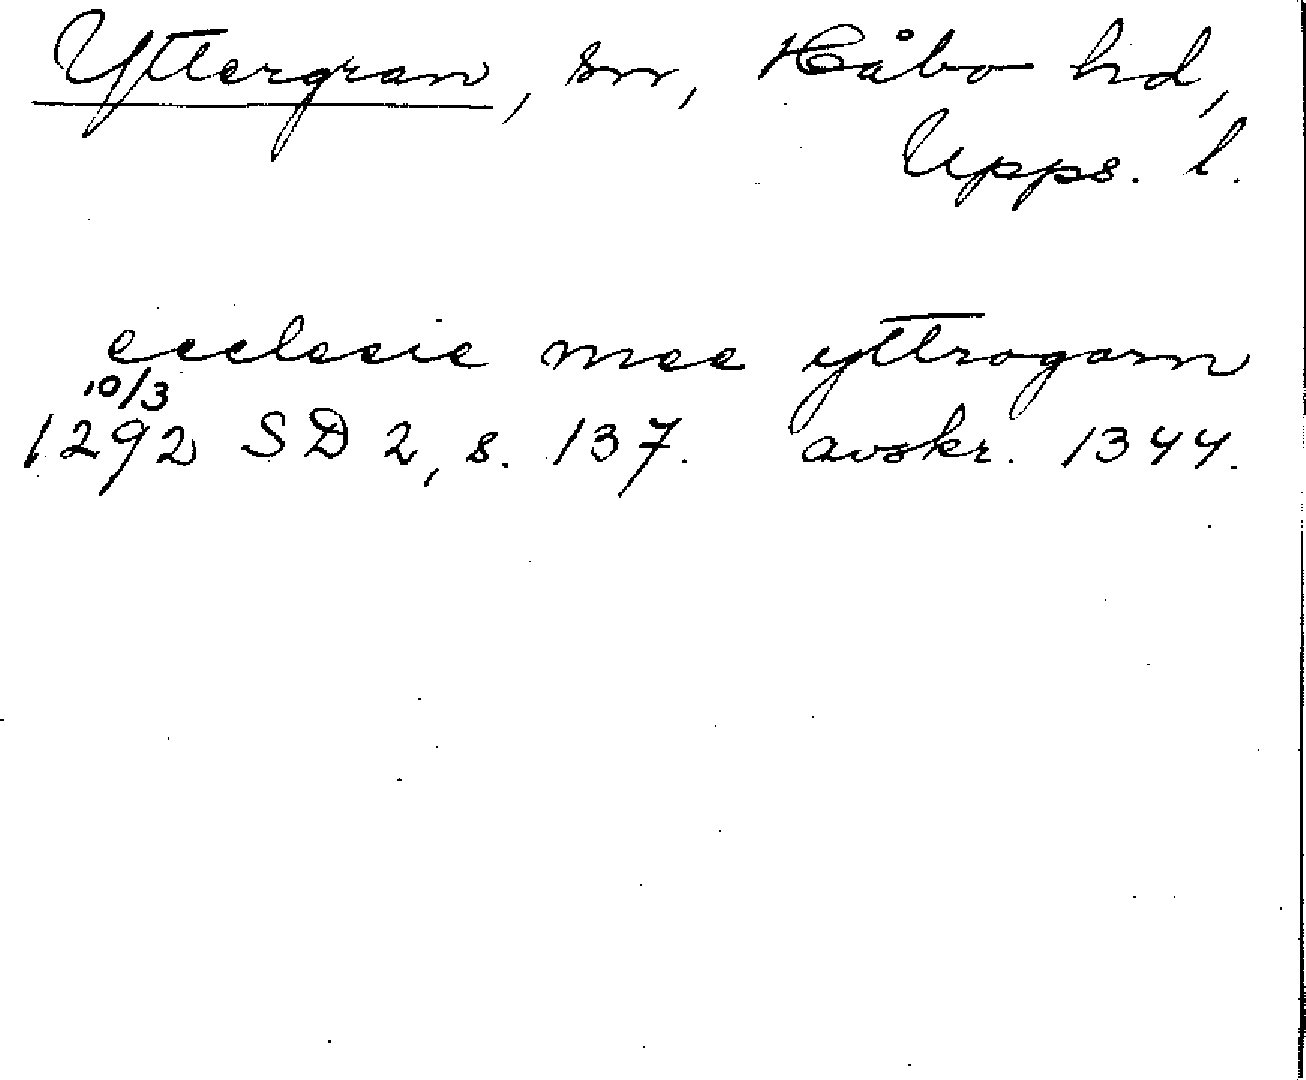 Yttergran, sn, Håbo hd,
Upps. l.
ecclesie mee yttrogarn
10/3
1292 SD 2, s. 137. avskr. 1344.